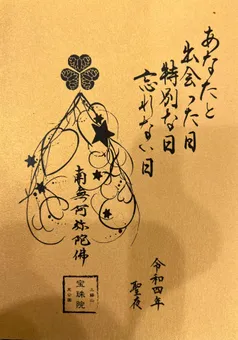 あなたと
出会った日
特別な日
忘れない日
南無阿弥陀佛
令和四年
聖夜
宝珠院